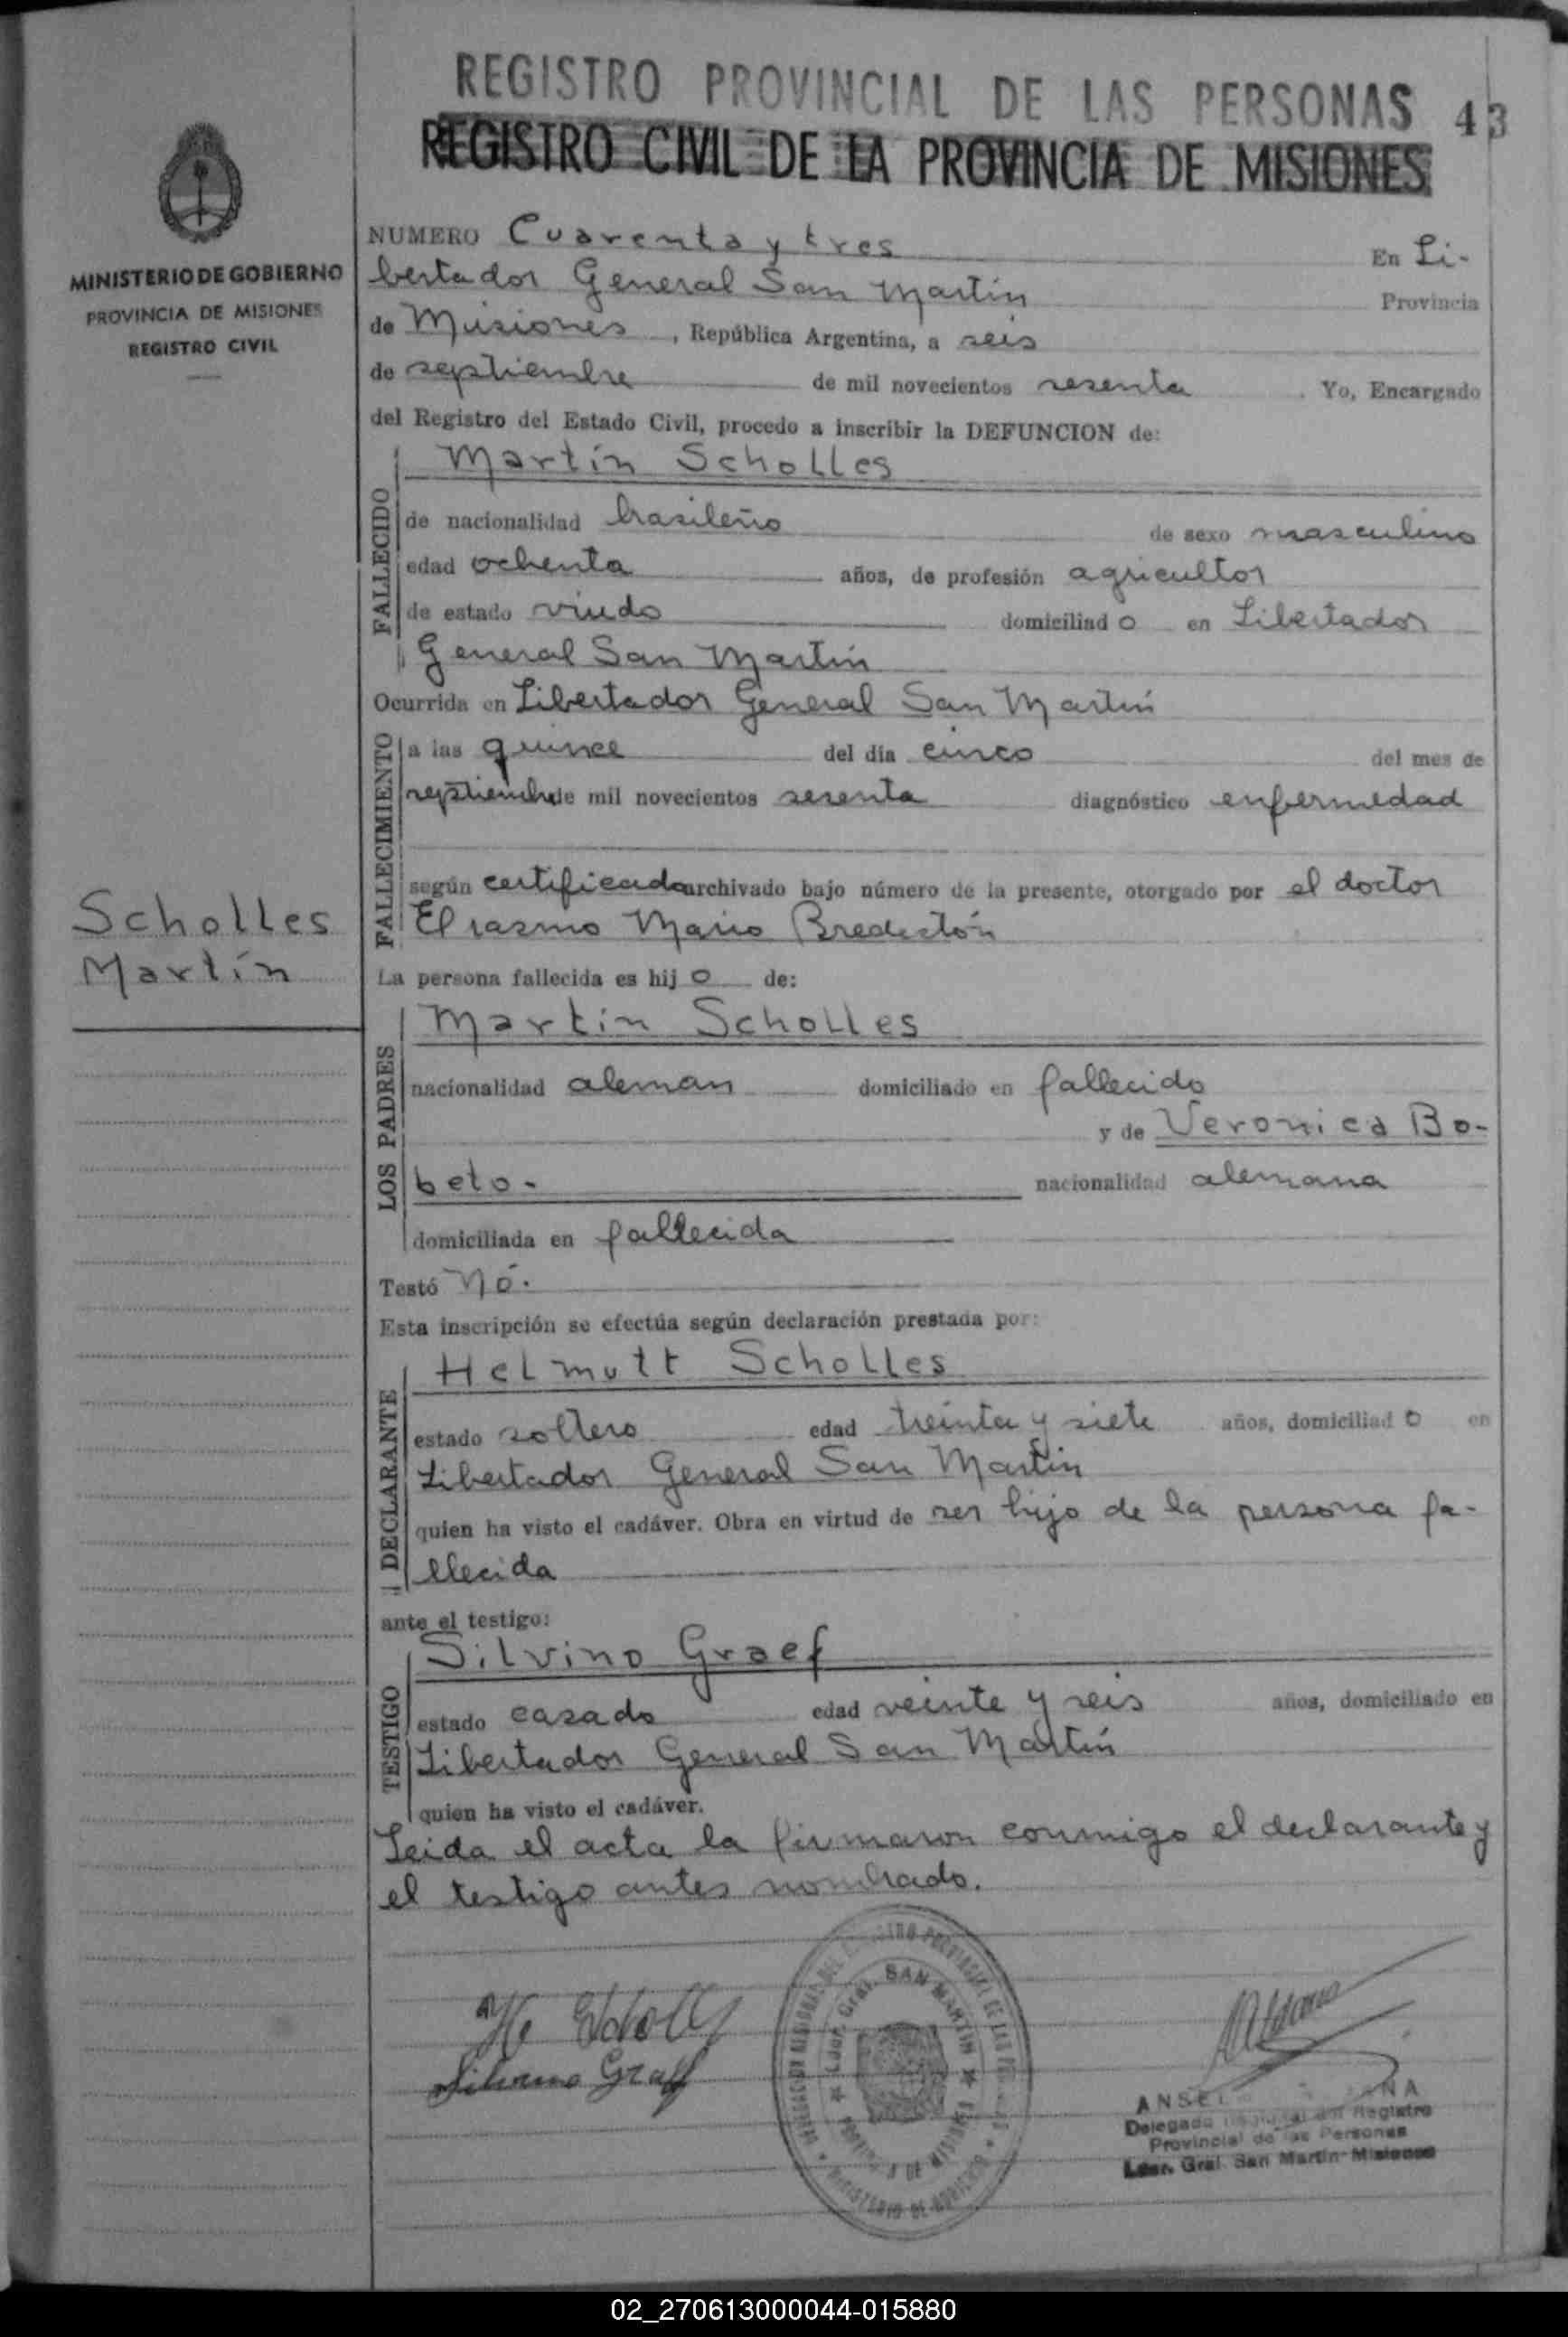 REGISTRO PROVINCIAL DE LAS PERSONAS 43
REGISTRO CIVIL DE LA PROVINCIA DE MISIONES
MINISTERIO DE GOBIERNO
PROVINCIA DE MISIONES
REGISTRO CIVIL
NUMERO Cuarenta y tres En Li-
bertador General San Martín Provincia
de Misiones, República Argentina, a seis
de septiembre de mil novecientos sesenta. Yo, Encargado
del Registro del Estado Civil, procedo a inscribir la DEFUNCION de:
Martín Scholles
FALLECIDO
de nacionalidad brasileño de sexo masculino
edad ochenta años, de profesión agricultor
de estado viudo domiciliado en Libertador
General San Martín
Ocurrida en Libertador General San Martín
FALLECIMIENTO
a las quince del día cinco del mes de
septiembre de mil novecientos sesenta diagnóstico enfermedad
según certificado archivado bajo número de la presente, otorgado por el doctor
Mario
Scholles
Martín
La persona fallecida es hijo de:
LOS PADRES
Martín Scholles
nacionalidad aleman domiciliado en fallecido
y de Veronica Bo-
beto.- nacionalidad alemana
domiciliada en fallecida
Testó Nó.
Esta inscripción se efectúa según declaración prestada por:
DECLARANTE
Helmutt Scholles
estado soltero edad treinta y siete años, domiciliado en
Libertador General San Martín
quien ha visto el cadáver. Obra en virtud de ser hijo de la persona fa-
llecida
ante el testigo:
TESTIGO
Silvino Graef
estado casado edad veinte y seis años, domiciliado en
Libertador General San Martín
quien ha visto el cadáver.
Leida el acta la firmaron conmigo el declarante y
el testigo antes nombrado.
Silvino Graef
Ldor. Gral. SAN MARTIN
Delegado Regional del Registro
Provincial de las Personas
Ldor. Gral. San Martín-Misiones
02_270613000044-015880